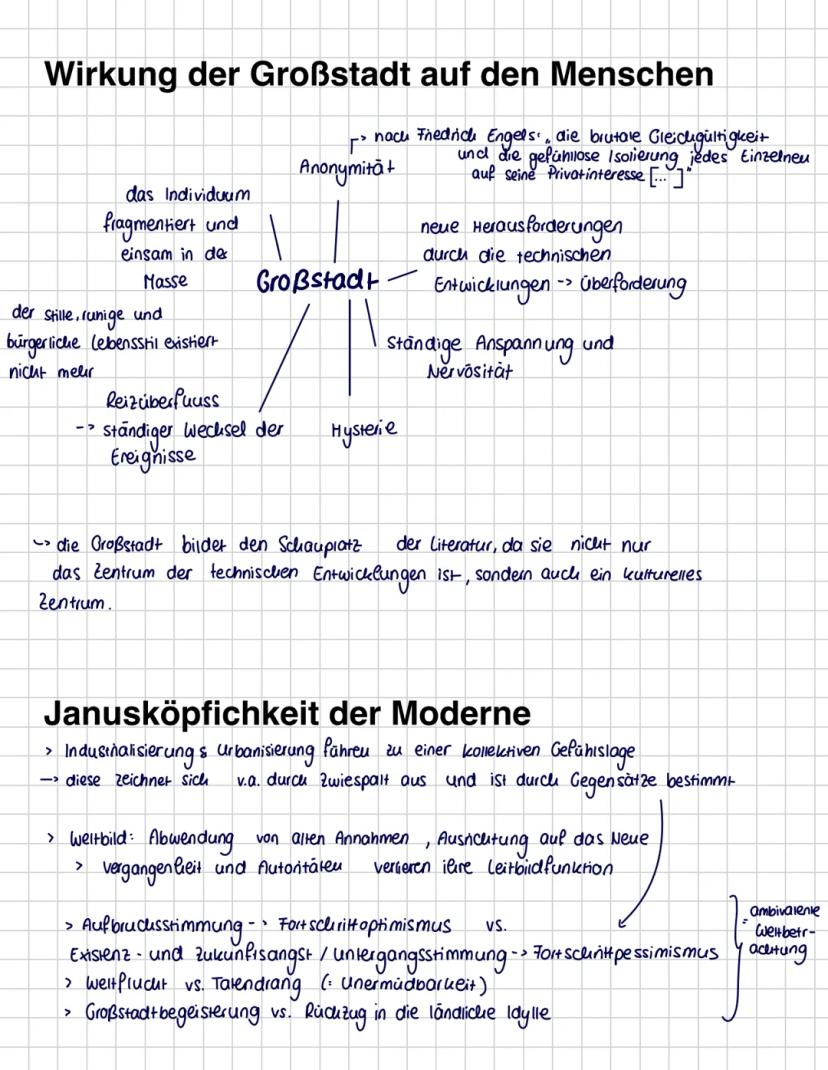 Wirkung der Großstadt auf den Menschen
-> nach Friedrich Engels: „die brutale Gleichgültigkeit
und die gefühllose Isolierung jedes Einzelnen
auf seine Privatinteresse [...]"
Anonymität
das Individuum
fragmentiert und
einsam in der
Masse
neue Herausforderungen
durch die technischen
Entwicklungen -> Überforderung
Großstadt
der stille, ruhige und
bürgerliche Lebensstil existiert
nicht mehr
Ständige Anspannung und
Nervösität
Reizüberfluss
-> ständiger Wechsel der
Ereignisse
Hysterie
-> die Großstadt bildet den Schauplatz der Literatur, da sie nicht nur
das Zentrum der technischen Entwicklungen ist, sondern auch ein kulturelles
Zentrum.
Janusköpfichkeit der Moderne
> Industrialisierung & Urbanisierung führen zu einer kollektiven Gefühlslage
-> diese zeichnet sich v.a. durch Zwiespalt aus und ist durch Gegensätze bestimmt
> Weltbild: Abwendung von alten Annahmen, Ausrichtung auf das Neue
> Vergangenheit und Autoritäten verlieren ihre Leitbildfunktion
> Aufbruchsstimmung -> Fortschrittoptimismus vs.
Existenz- und Zukunftsangst / Untergangsstimmung -> Fortschrittpessimismus
> Weltflucht vs. Tatendrang (: Unermüdbarkeit)
> Großstadtbegeisterung vs. Rückzug in die ländliche Idylle
ambivalente
: Weltbetr-
achtung